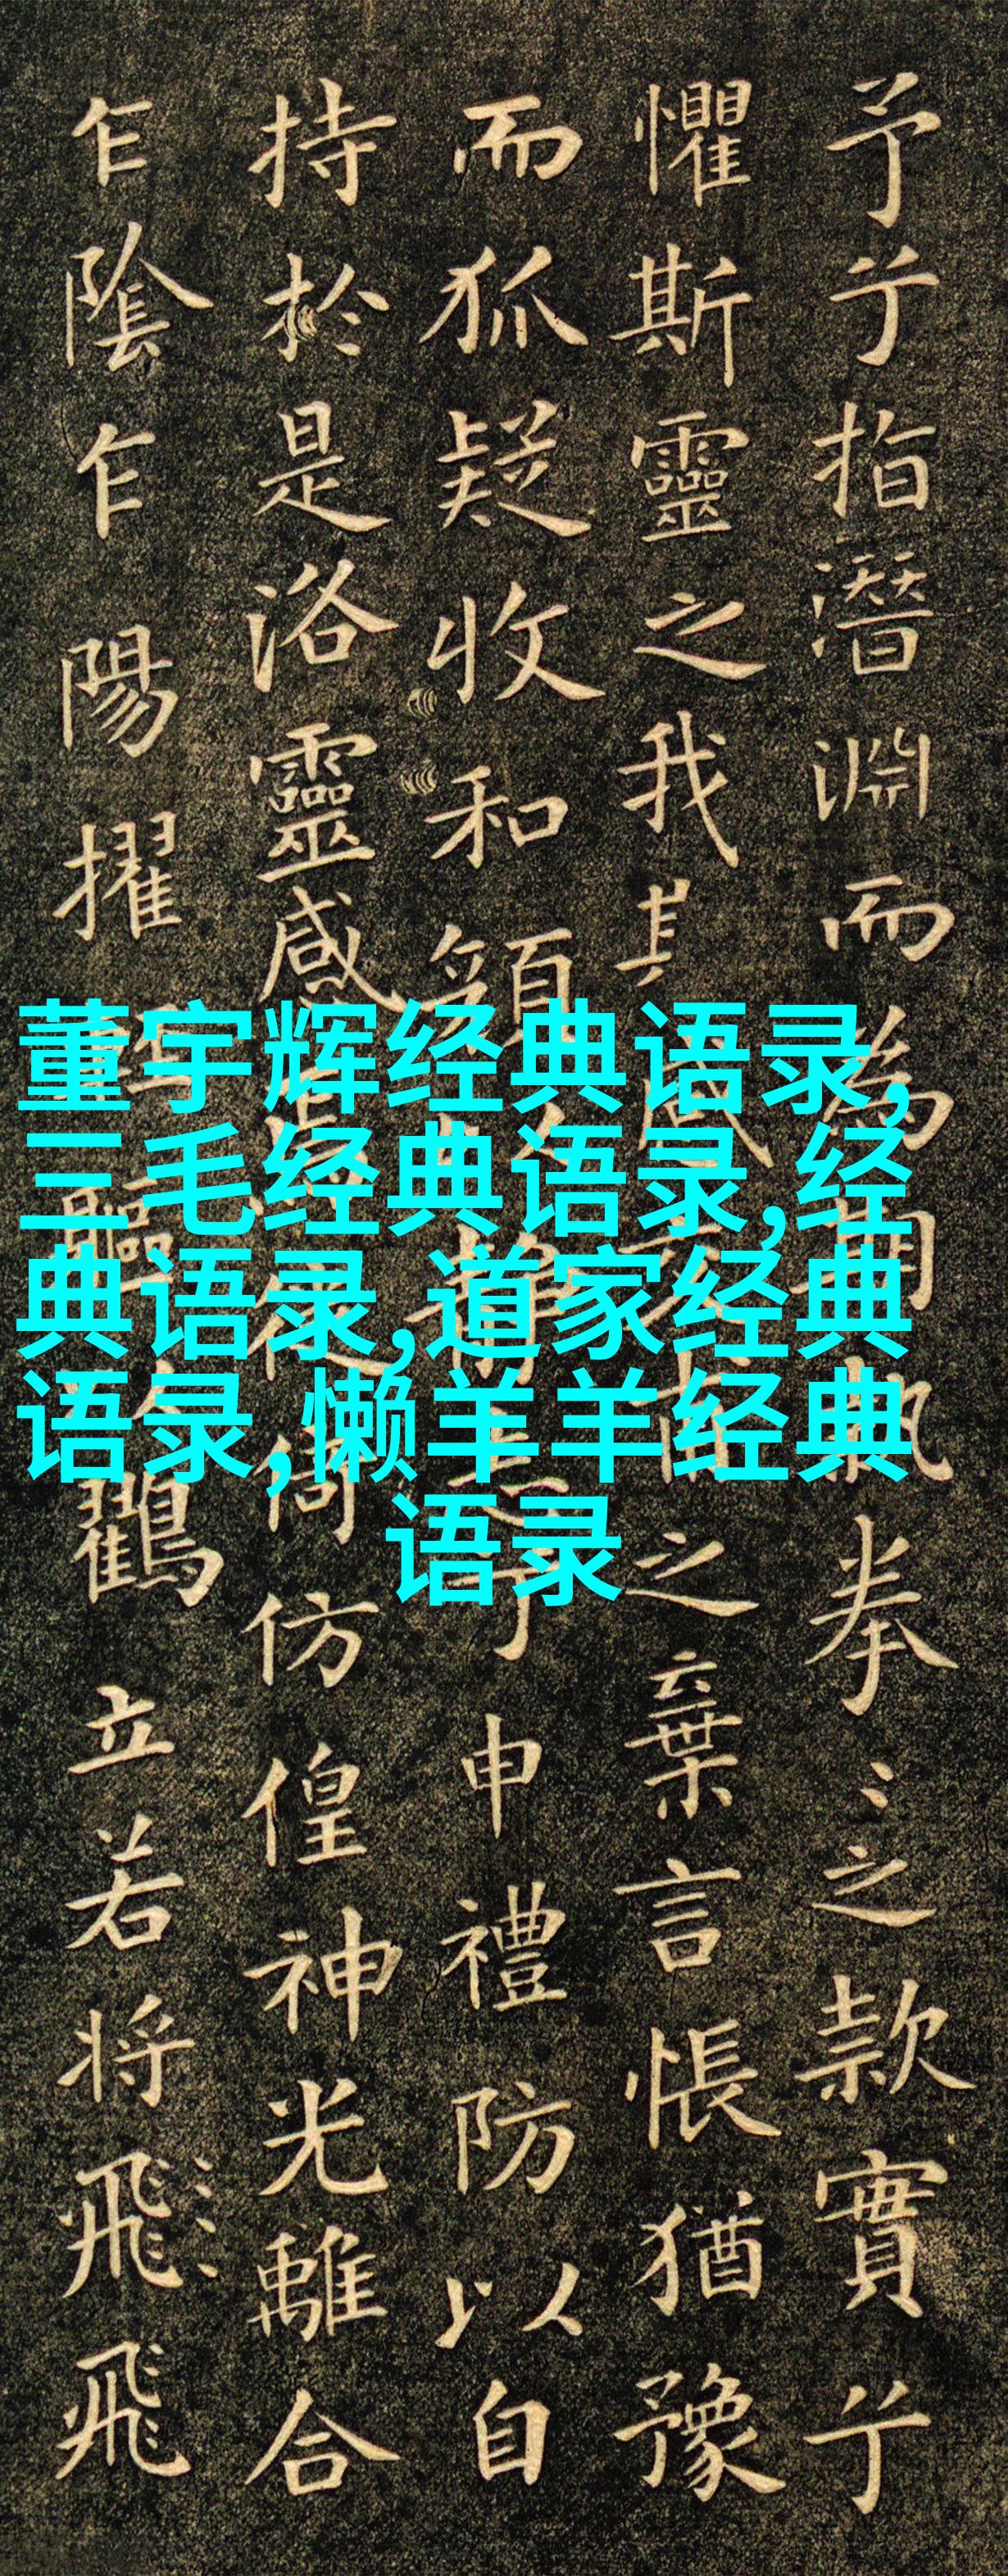 董宇辉经典语录,
三毛经典语录,经
典语录,道家经典
语录,懒羊羊经典
语录
予兮指潛淵而為期執拳〻之款實兮
懼斯靈之我感交甫之棄言悵猶豫
而狐疑收和顏靜志兮申禮防以自
持於是洛靈感焉徙倚仿偟神光離合
乍陰乍陽擢輕軀以鶴立若將飛飛